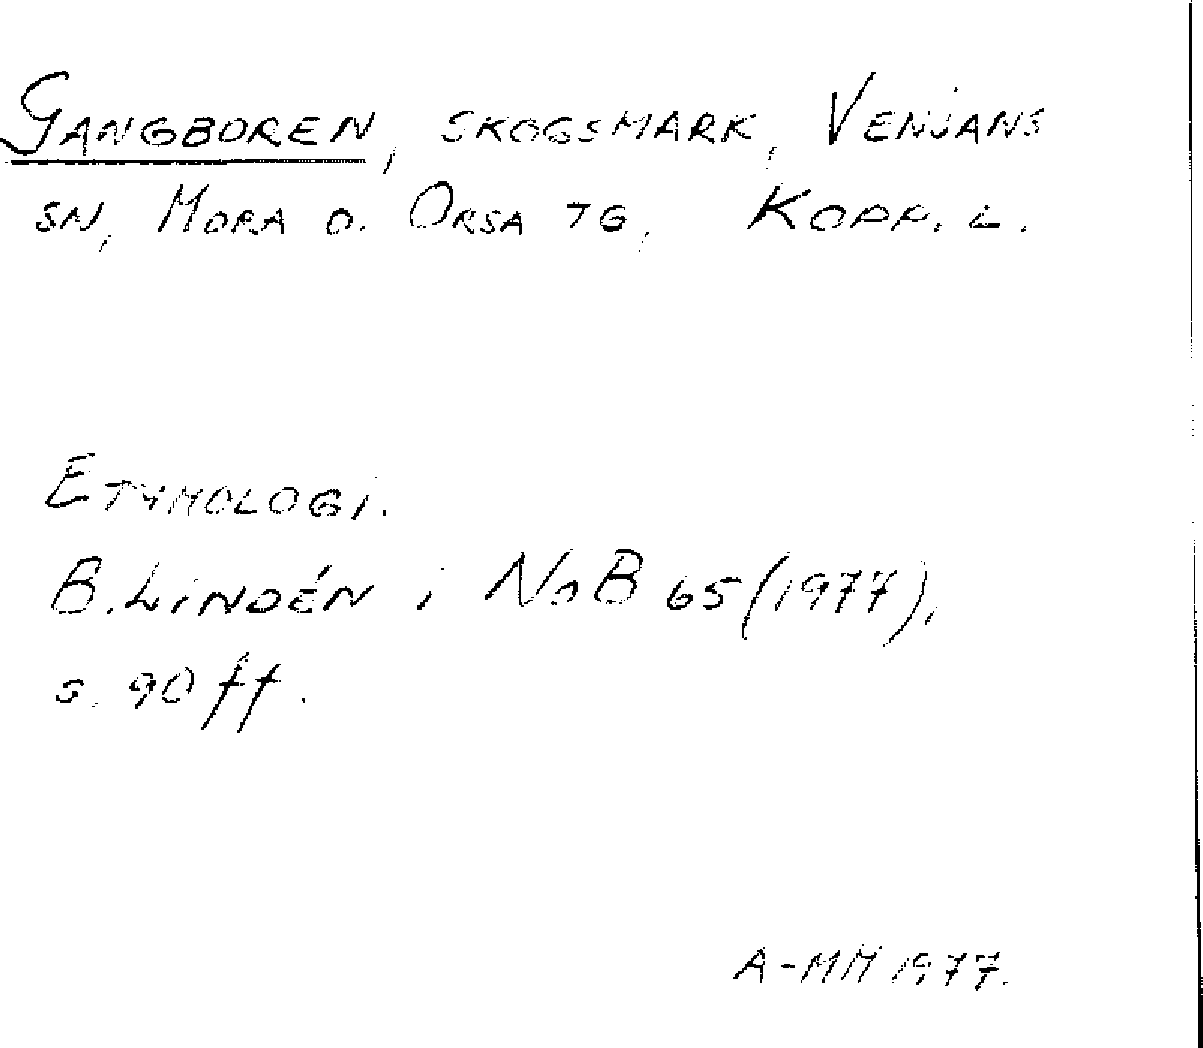 GANGBOREN, SKOGSMARK, VENJANS
SN, MORA O. ORSA TG, KOPP. L.
ETYMOLOGI.
B. LINDÉN i NoB 65 (1977),
S. 90 ff.
A-MM 1977.